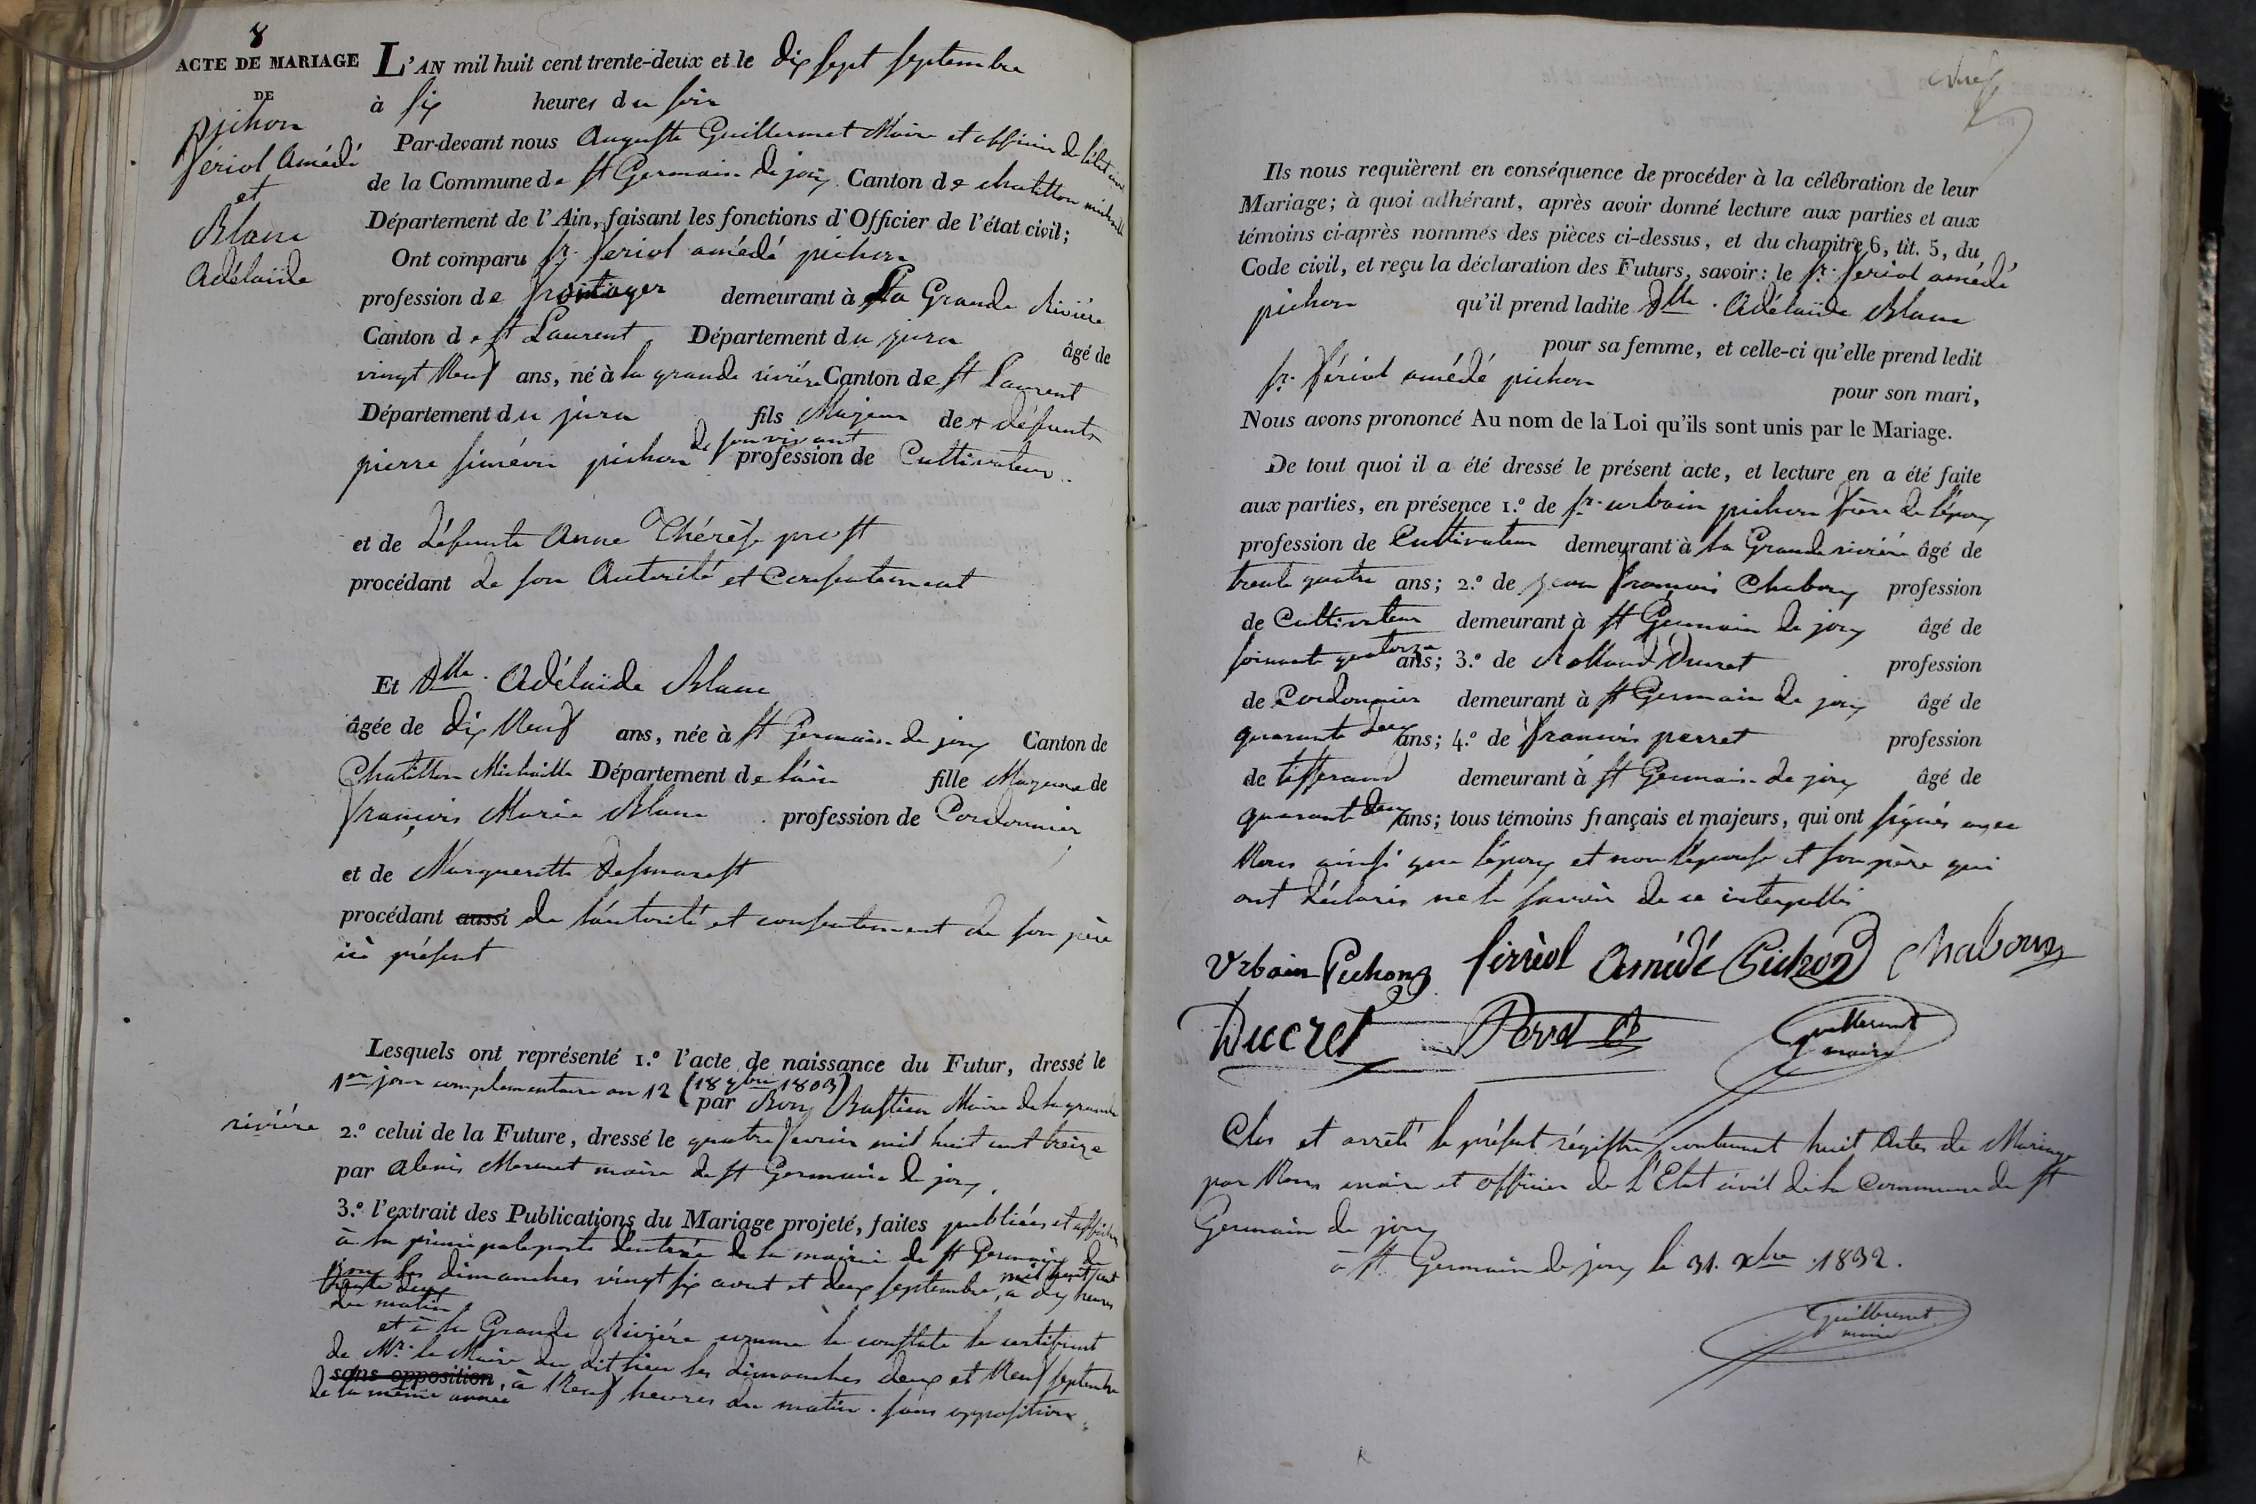 8
ACTE DE MARIAGE
DE
pichon
fériol Amédé
et
Blanc
Adélaïde
L'AN mil huit cent trente-deux et le dix sept septembre
à six heures du soir
Par-devant nous Auguste Guillermet Maire et officier de l'état civil
de la Commune de st Germain de joux Canton de chatillon michaille
Département de l'Ain, faisant les fonctions d'Officier de l'état civil;
Ont comparu sr. feriol amédé pichon
profession de demeurant à La Grande Rivière
Canton de st Laurent Département du jura âgé de
vingt Neuf ans, né à la grande rivière Canton de st Laurent
Département du jura fils Majeur de + défunts
pierre siméon pichon de son vivant profession de Cultivateur
et de défunte Anne Thérèse prost
procédant de son Autorité et Consentement
Et Dlle. Adélaïde Blanc
âgée de dix Neuf ans, née à st Germain de joux Canton de
Chatillon Michaille Département de l'ain fille Mageure de
françois Marie Blanc profession de Cordonnier
et de Margueritte Desmarest
procédant aussi de l'autorité et consentement de son père
ici présent
Lesquels ont représenté 1.º l'acte de naissance du Futur, dressé le
1er jour complementaire an 12 (18 7bre 1803)
par Roux Bastien Maire de la grande
rivière
2.º celui de la Future, dressé le quatre fevrier mil huit cent treize
par alexis Mermet maire de st Germain de joux,
3.º l'extrait des Publications du Mariage projeté, faites publiées et affichées
à la principale porte d'entrée de la mairie de st Germain de
joux les dimanches vingt six aout et deux septembre mil huit cent
trente deux, à dix heures
du matin
et à la Grande Rivière comme le constate le certificat
de Mr. le Maire du dit lieu les dimanches deux et Neuf septembre
sans opposition à Neuf heures du matin. sans opposition.
de la même année
Ils nous requièrent en conséquence de procéder à la célébration de leur
Mariage; à quoi adhérant, après avoir donné lecture aux parties et aux
témoins ci-après nommés des pièces ci-dessus, et du chapitre 6, tit. 5, du
Code civil, et reçu la déclaration des Futurs, savoir: le sr. feriol amédé
pichon qu'il prend ladite Dlle. Adélaïde Blanc
pour sa femme, et celle-ci qu'elle prend ledit
sr. fériol amédé pichon pour son mari,
Nous avons prononcé Au nom de la Loi qu'ils sont unis par le Mariage.
De tout quoi il a été dressé le présent acte, et lecture en a été faite
aux parties, en présence 1.º de sr. urbain pichon frère de l'époux
profession de Cultivateur demeurant à la Grande rivière âgé de
trente quatre ans; 2.º de jean françois Chaboux profession
de Cultivateur demeurant à st Germain de joux âgé de
soixante quatorze ans; 3.º de Rolland Ducret profession
de Cordonnier demeurant à st Germain de joux âgé de
quarante deux ans; 4.º de françois perret profession
de tisserand demeurant à st Germain de joux âgé de
quarante deux ans; tous témoins français et majeurs, qui ont signés avec
Nous ainsi que l'époux et non l'épouse et son père qui
ont déclarés ne le savoir de ce interpellés
Urbain Pichon ferréol Amédé Pichon Chaboux
Ducret Perret Guillermet
maire
Clos et arrêté le présent régistre contenant huit Actes de Mariage
par Nous maire et officier de l'Etat civil de la Commune de st
Germain de joux
à st Germain de joux le 31. Xbre 1832.
Guillermet
maire